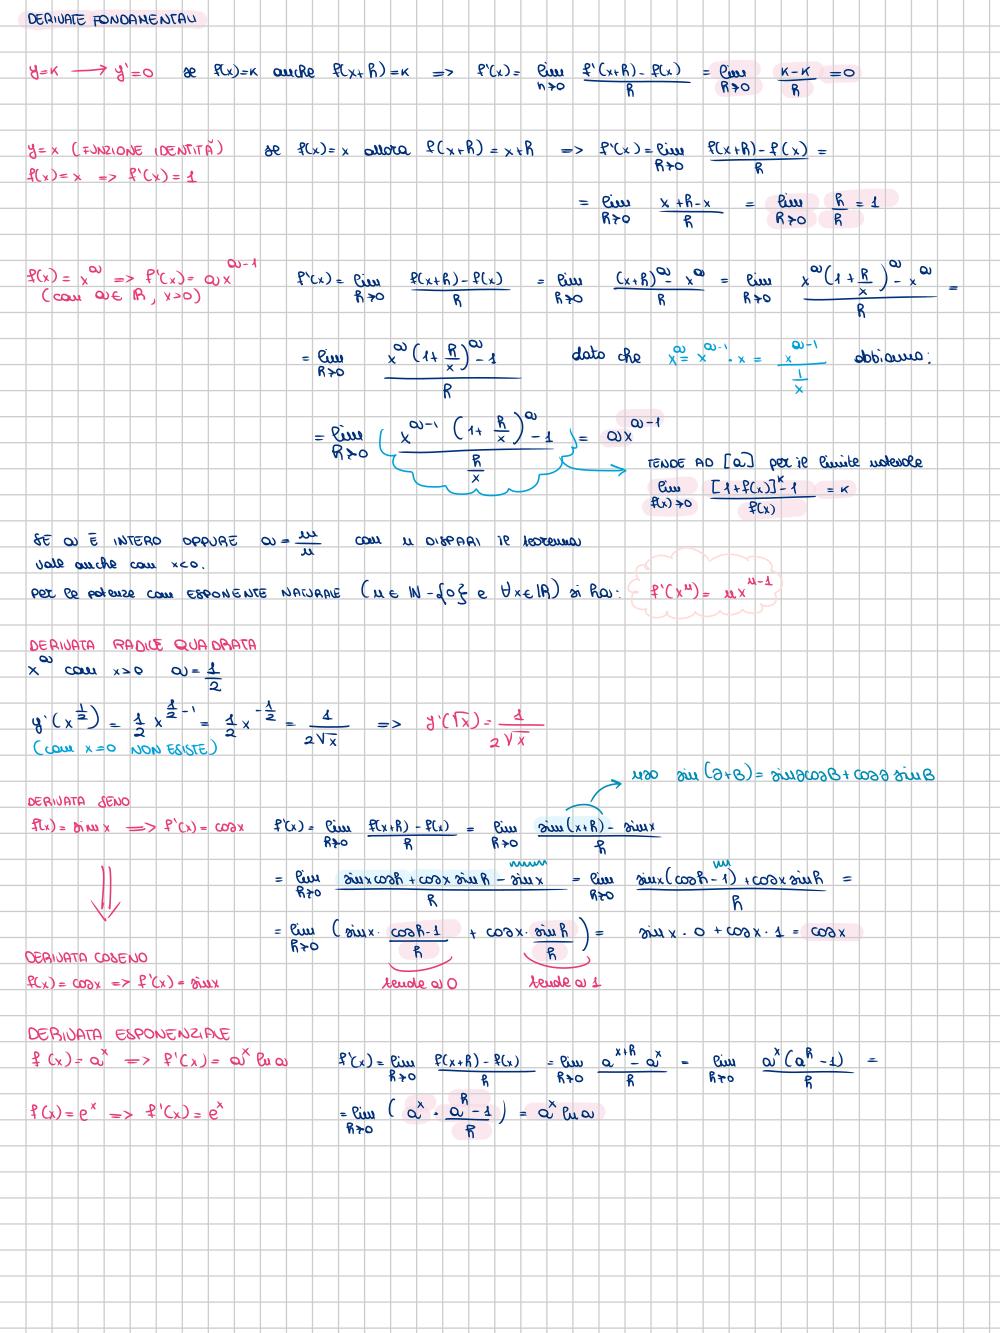 DERIVATE FONDAMENTALI
y=k ⟶ y'=0 se f(x)=k anche f(x+h)=k => f'(x)= lim h→0 f'(x+h)-f(x) / h = lim h→0 k-k / h =0
y=x (FUNZIONE IDENTITÀ) se f(x)=x allora f(x+h)=x+h => f'(x)=lim h→0 f(x+h)-f(x) / h =
f(x)=x => f'(x)=1
= lim h→0 x+h-x / h = lim h→0 h/h = 1
f(x)=x^a => f'(x)=ax^(a-1) f'(x)= lim h→0 f(x+h)-f(x) / h = lim h→0 (x+h)^a - x^a / h = lim h→0 x^a(1+h/x)^a - x^a / h =
(con a∈ℝ, x>0)
= lim h→0 x^a(1+h/x)^a -1 / h dato che x^a = x^(a-1)·x = x^(a-1) / 1/x abbiamo:
= lim h→0 x^(a-1) (1+h/x)^a -1 / h/x = ax^(a-1)
TENDE AD [a] per il limite notevole
lim f(x)→0 [1+f(x)]^k -1 / f(x) = k
SE a È INTERO OPPURE a=m/n con n DISPARI il teorema
vale anche con x<0.
per le potenze con ESPONENTE NATURALE (n∈ℕ-{0} e ∀x∈ℝ) si ha: f'(x^n)= nx^(n-1)
DERIVATA RADICE QUADRATA
x^a con x>0 a=1/2
y'(x^(1/2)) = 1/2 x^(1/2 -1) = 1/2 x^(-1/2) = 1/2√x => y'(√x)=1/2√x
(con x=0 NON ESISTE)
uso sin(a+B)=sinacosB+cosa sinB
DERIVATA SENO
f(x)=sinx => f'(x)=cosx f'(x)= lim h→0 f(x+h)-f(x) / h = lim h→0 sin(x+h)- sinx / h
= lim h→0 sinxcosh+cosx sinh - sinx / h = lim h→0 sinx(cosh-1)+cosx sinh / h =
= lim h→0 (sinx· cosh-1 / h + cosx· sinh / h) = sinx·0+cosx·1 = cosx
tende a 0 tende a 1
DERIVATA COSENO
f(x)=cosx => f'(x)=sinx
DERIVATA ESPONENZIALE
f(x)=a^x => f'(x)=a^x ln a f'(x)= lim h→0 f(x+h)-f(x) / h = lim h→0 a^(x+h) - a^x / h = lim h→0 a^x(a^h -1) / h =
f(x)=e^x => f'(x)=e^x = lim h→0 (a^x · a^h -1 / h) = a^x ln a